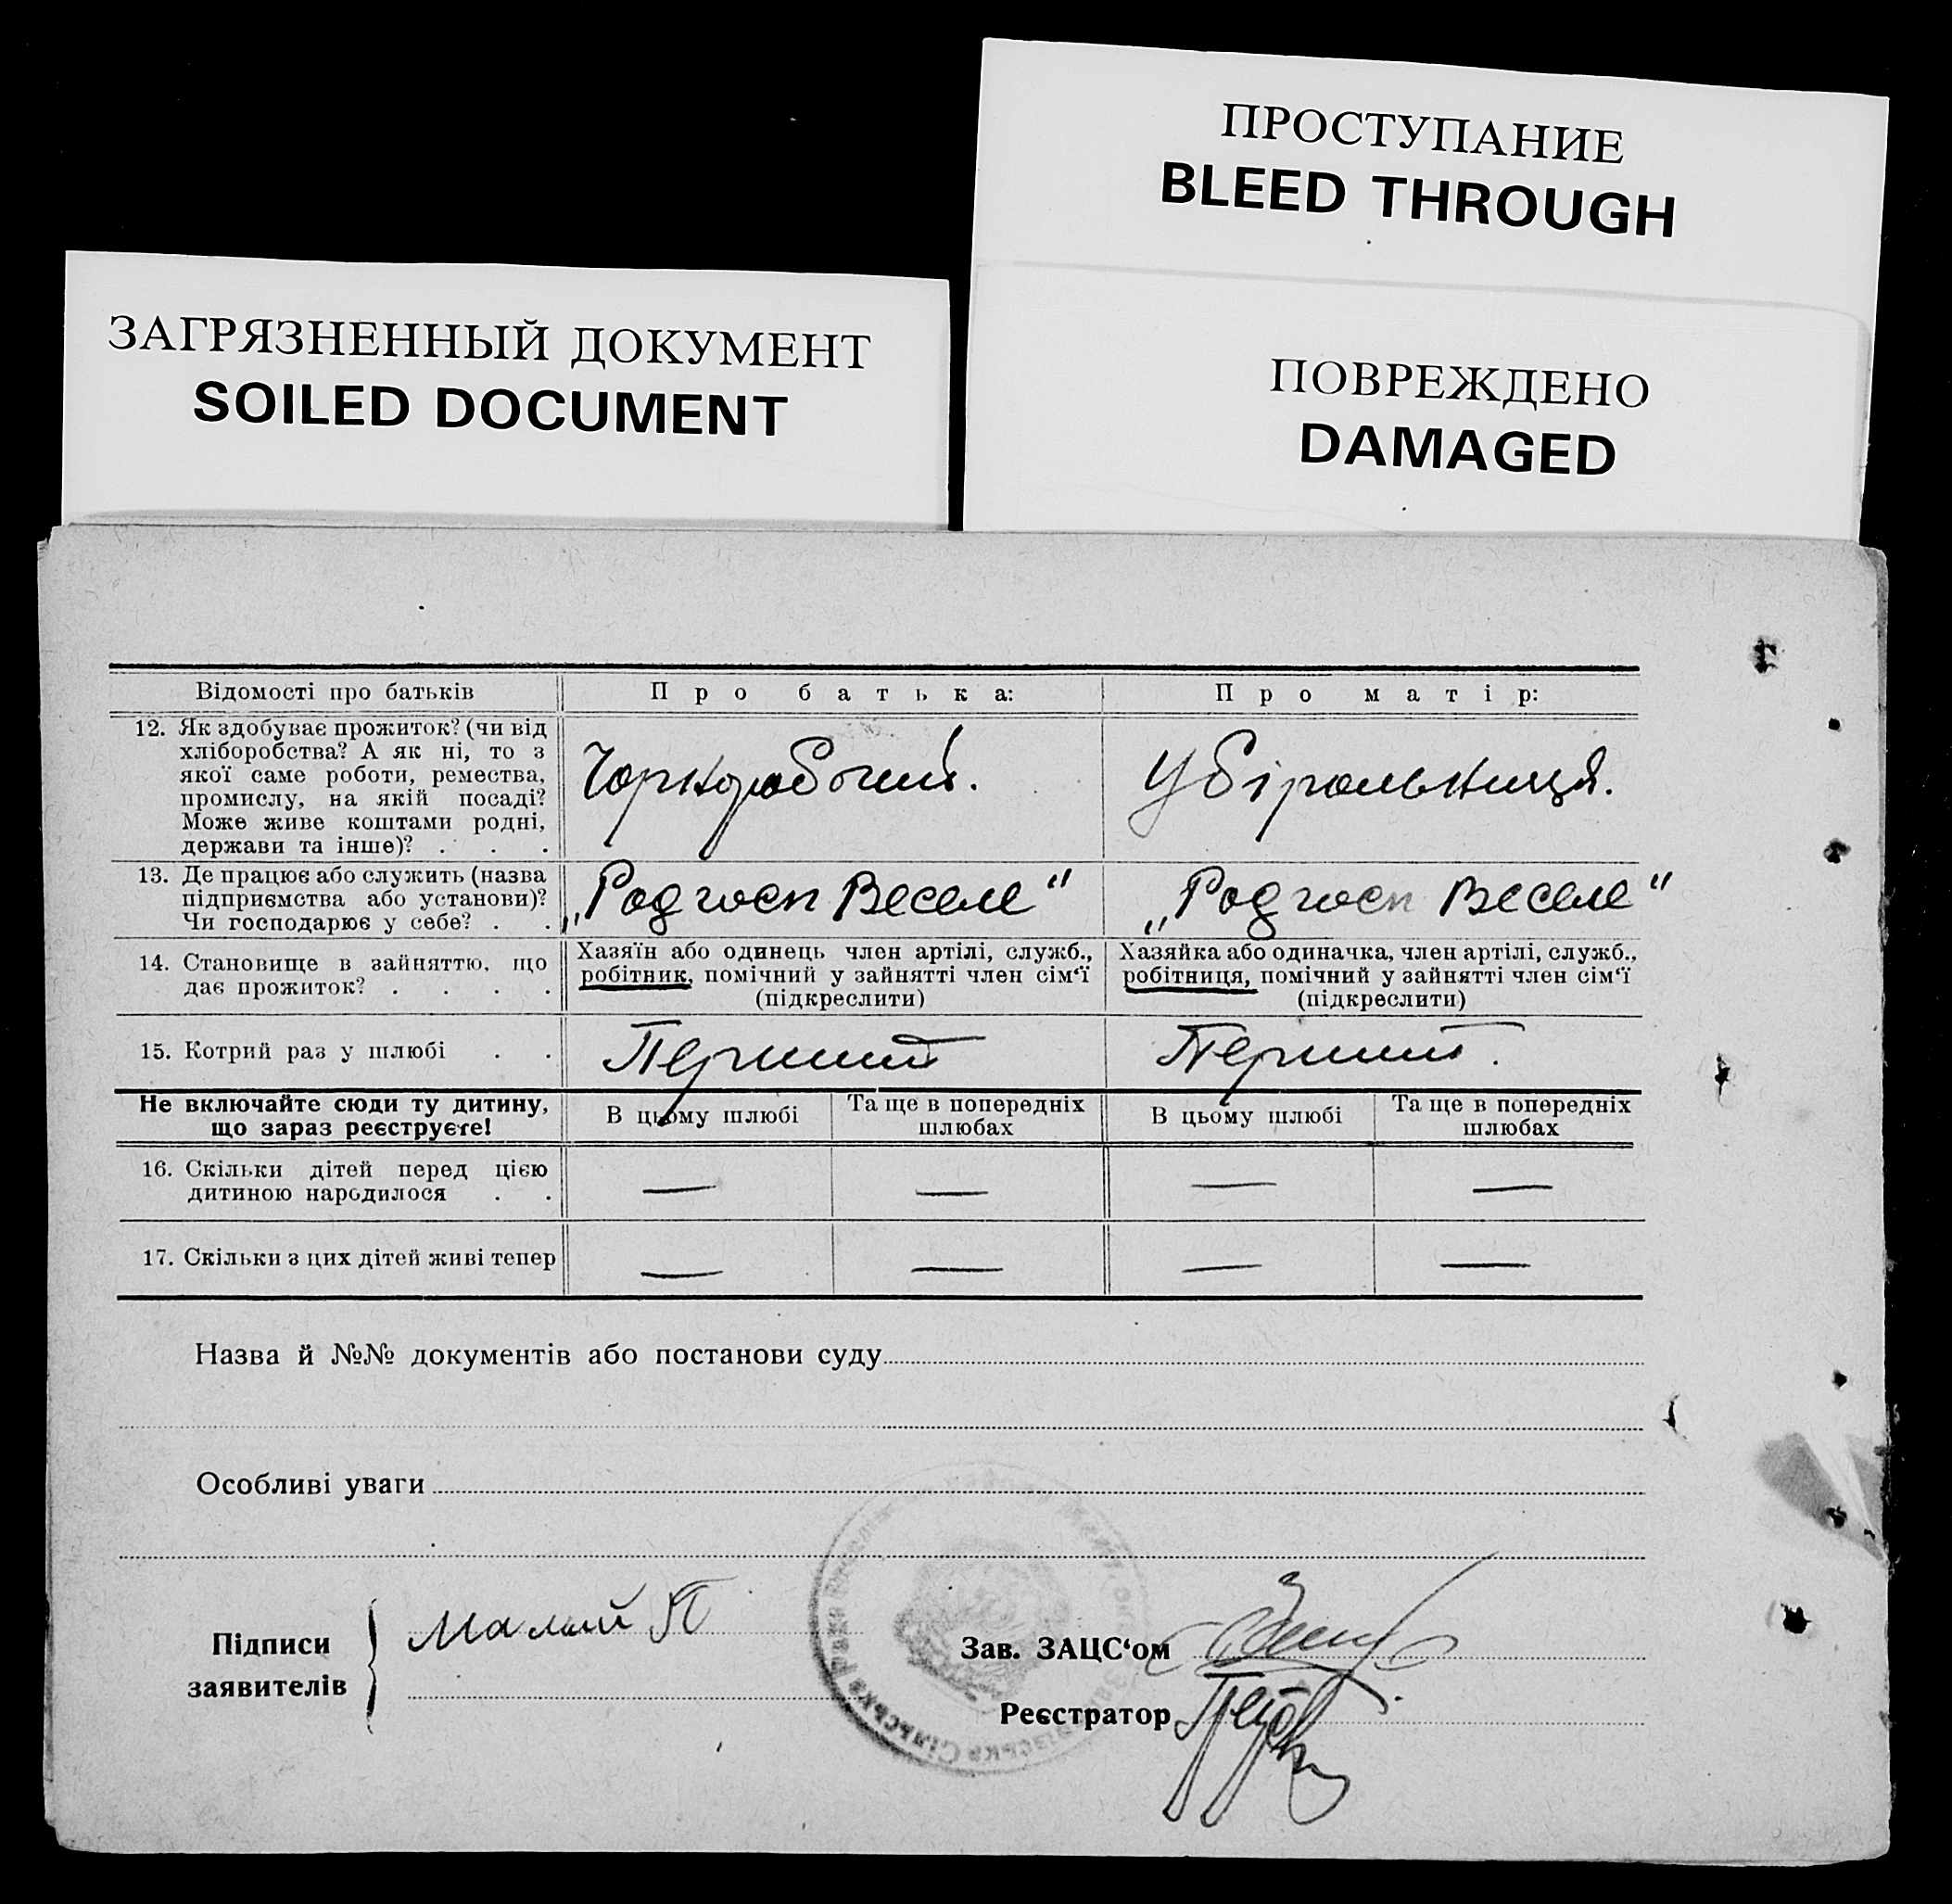 ПРОСТУПАНИЕ
BLEED THROUGH
ПОВРЕЖДЕНО
DAMAGED
ЗАГРЯЗНЕННЫЙ ДОКУМЕНТ
SOILED DOCUMENT
Відомості про батьків
Про батька:
Про матір:
12. Як здобуває прожиток? (чи від
хліборобства? А як ні, то з
якої саме роботи, ремества,
промислу, на якій посаді?
Може живе коштами родні,
держави та інше)? . . .
Чорноробочий.
Убіральниця.
13. Де працює або служить (назва
підприємства або установи)?
Чи господарює у себе? . .
„Радгосп Веселе“
„Радгосп Веселе“
14. Становище в зайняттю, що
дає прожиток? . . . .
Хазяїн або одинець член артілі, служб.,
робітник, помічний у зайнятті член сім‘ї
(підкреслити)
Хазяйка або одиначка, член артілі, служб.,
робітниця, помічний у зайнятті член сім‘ї
(підкреслити)
15. Котрий раз у шлюбі . .
Перший
Перший.
Не включайте сюди ту дитину,
що зараз реєструєте!
В цьому шлюбі
Та ще в попередніх
шлюбах
В цьому шлюбі
Та ще в попередніх
шлюбах
16. Скільки дітей перед цією
дитиною народилося . .
— — — —
17. Скільки з цих дітей живі тепер
— — — —
Назва й №№ документів або постанови суду
Особливі уваги
Підписи
заявителів
Малий П
Зав. ЗАЦС‘ом
Реєстратор
Сільська Рада